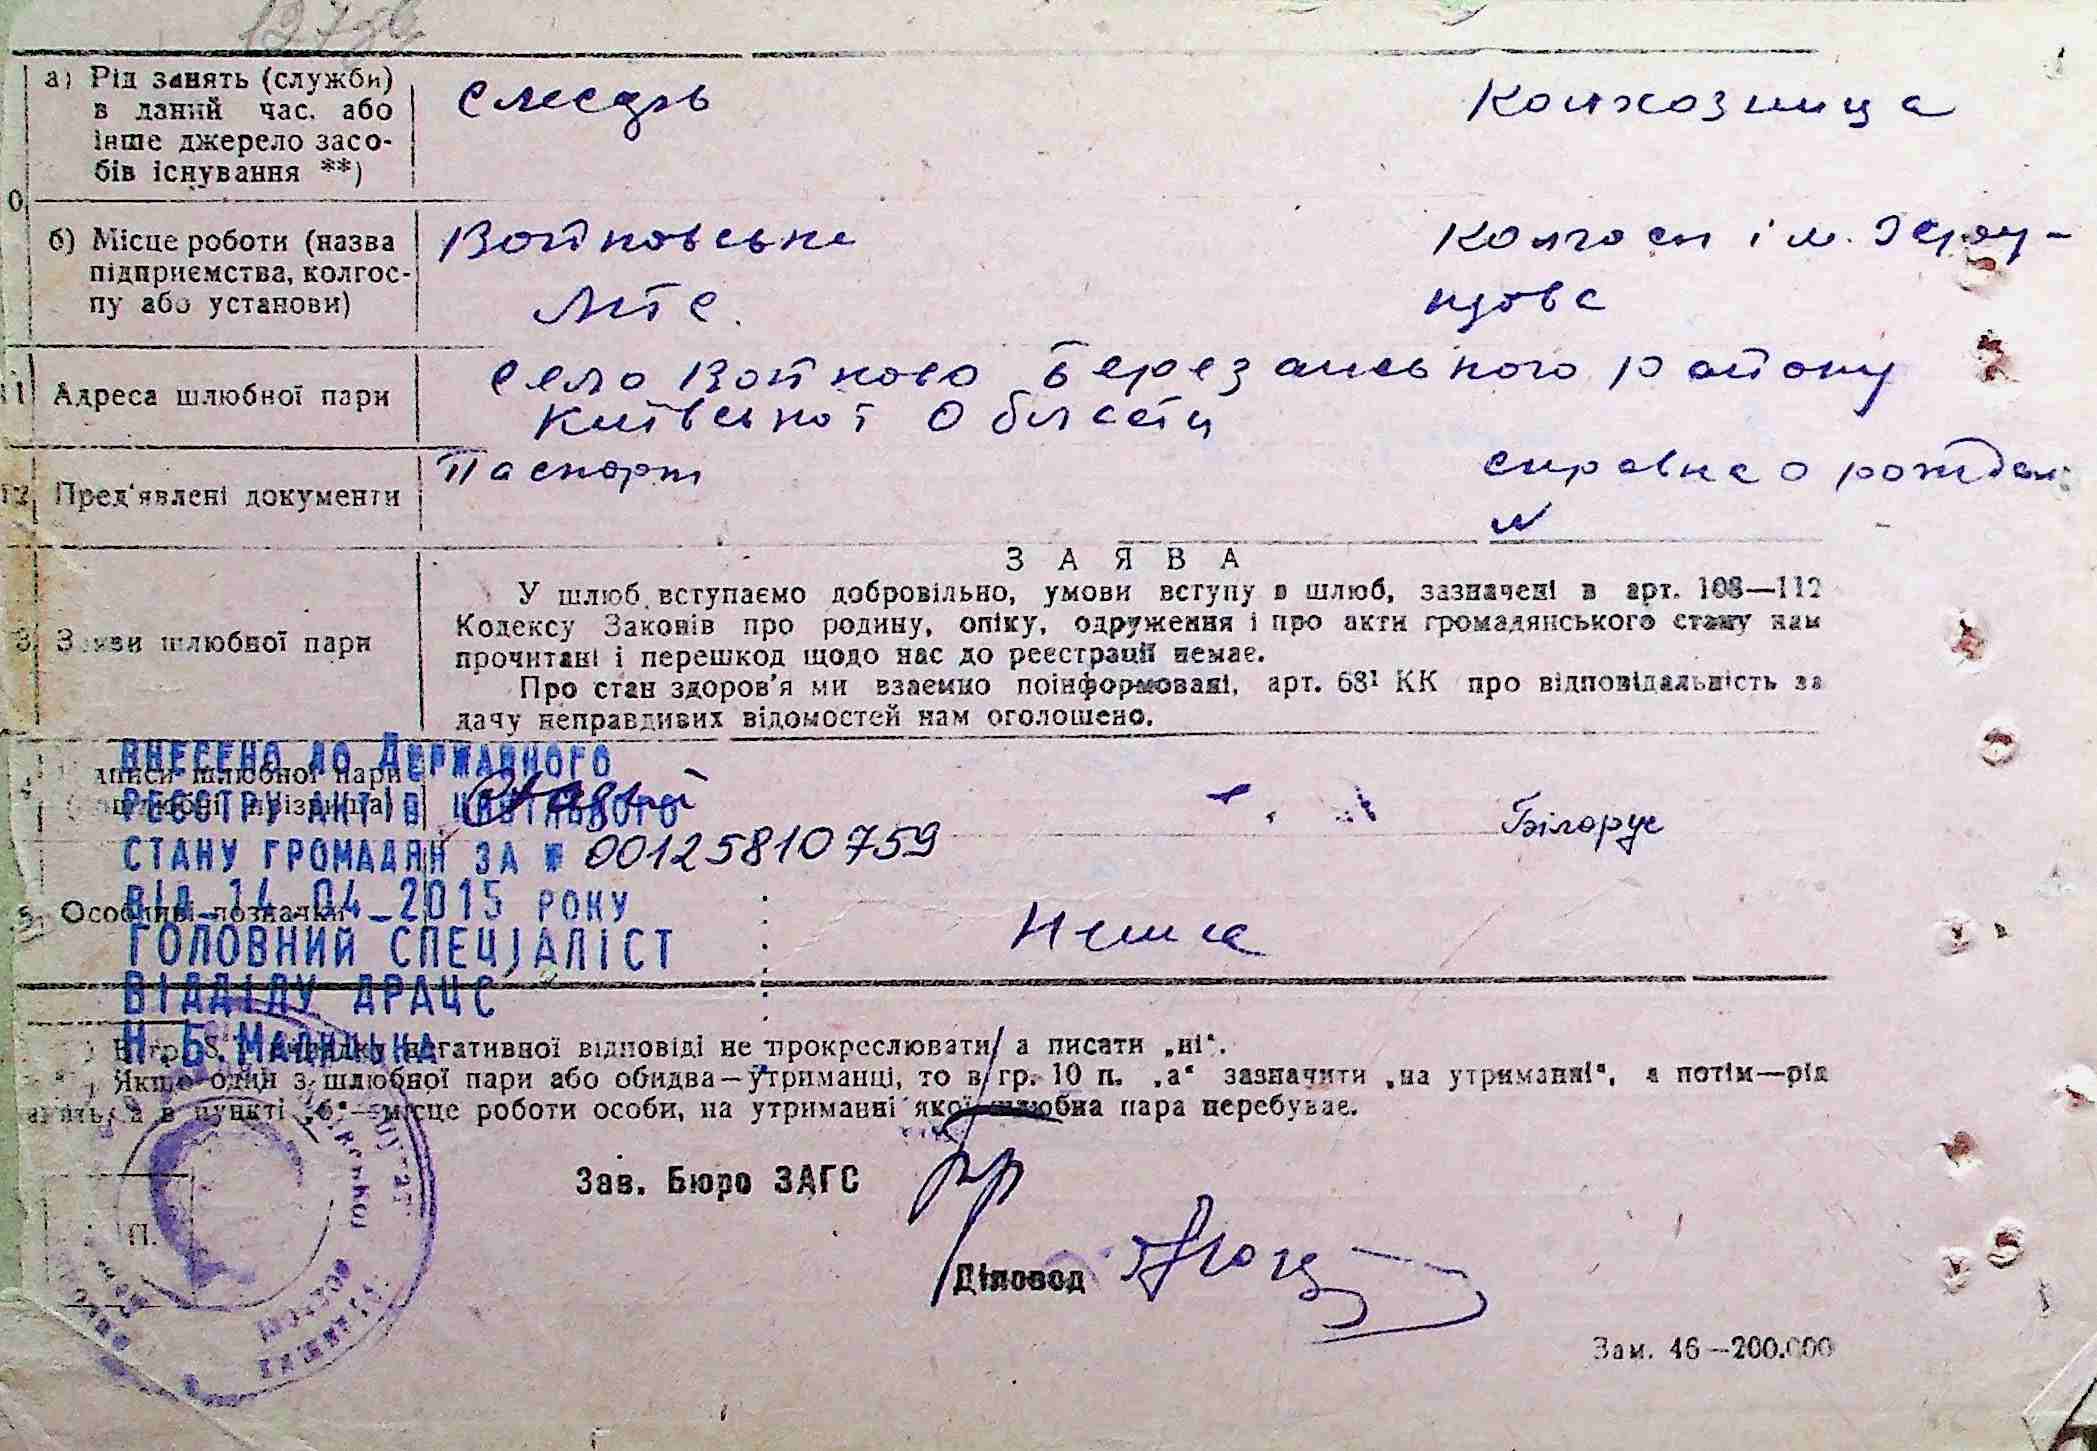 127 зв.
а) Рід занять (служби)
в даний час, або
інше джерело засо-
бів існування **)
слесарь
Колхозница
б) Місце роботи (назва
підприємства, колгос-
пу або установи)
Войтовська
МТС.
Колгосп ім.
11 Адреса шлюбної пари
село Войтово Березанського району
Київської області
12 Пред'явлені документи
Паспорт
справка о рожден
№
ЗАЯВА
Заяви шлюбної пари
У шлюб вступаємо добровільно, умови вступу в шлюб, зазначені в арт. 108—112
Кодексу Законів про родину, опіку, одруження і про акти громадянського стану нам
прочитані і перешкод щодо нас до реєстрації немає.
Про стан здоров'я ми взаємно поінформовані, арт. 68¹ КК про відповідальність за
дачу неправдивих відомостей нам оголошено.
шлюбної пари
Білорус
ВНЕСЕНО ДО ДЕРЖАВНОГО
РЕЄСТРУ АКТІВ ЦИВІЛЬНОГО
СТАНУ ГРОМАДЯН ЗА № 00125810759
ВІД 14.04.2015 РОКУ
ГОЛОВНИЙ СПЕЦІАЛІСТ
ВІДДІЛУ ДРАЦС
Особливі позначки
Нема
негативної відповіді не прокреслювати, а писати „ні“.
Якщо один з шлюбної пари або обидва—утриманці, то в гр. 10 п. „а“ зазначити „на утриманні“, а потім—рід
а в пункті „б“—місце роботи особи, на утриманні якої шлюбна пара перебуває.
Зав. Бюро ЗАГС
П.
Діловод
Зам. 46—200.000